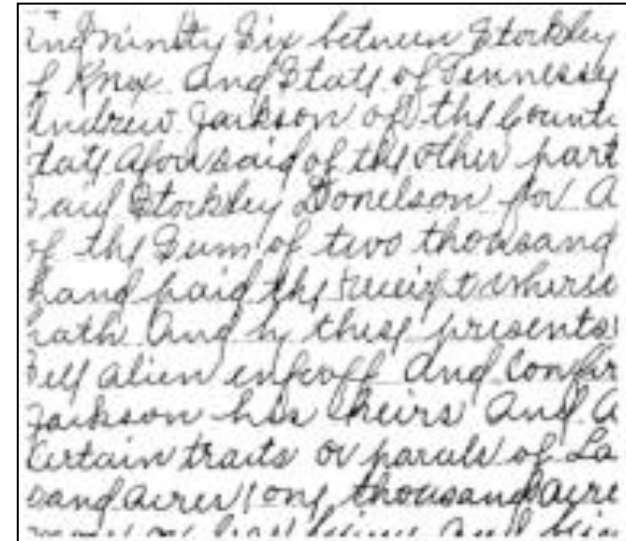 and ninety Six between Stockley
of Knox and State of Tennessey
Andrew Jackson of the Count
tate aforesaid of the other part
said Stockley Donelson for A
of the Sum of two thousand
hand paid the receipt where
hath And by these presents
Sell alien enfeoff And Confir
Jackson his heirs And A
Certain traits or parcels of La
sand acres one thousand acre